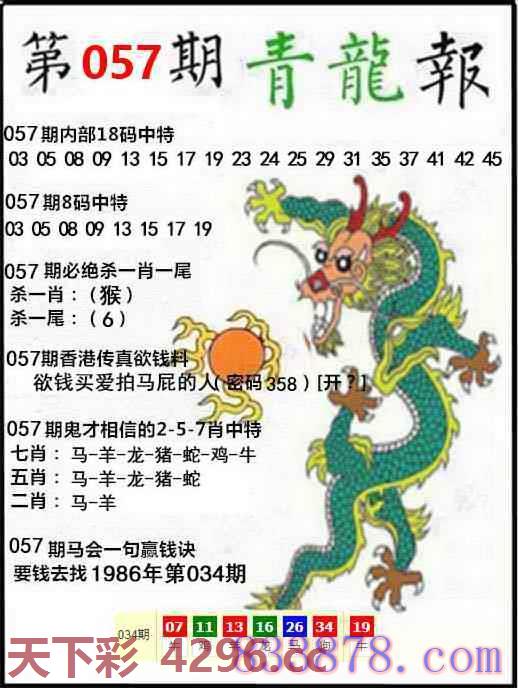 第057期青龍報
057期内部18码中特
03 05 08 09 13 15 17 19 23 24 25 29 31 35 37 41 42 45
057期8码中特
03 05 08 09 13 15 17 19
057期必绝杀一肖一尾
杀一肖：(猴)
杀一尾：(6)
057期香港传真欲钱料
欲钱买爱拍马屁的人(密码358)[开?]
057期鬼才相信的2-5-7肖中特
七肖：马-羊-龙-猪-蛇-鸡-牛
五肖：马-羊-龙-猪-蛇
二肖：马-羊
057期马会一句赢钱诀
要钱去找1986年第034期
034期 07 11 13 16 26 34 19
天下彩 4296.cc